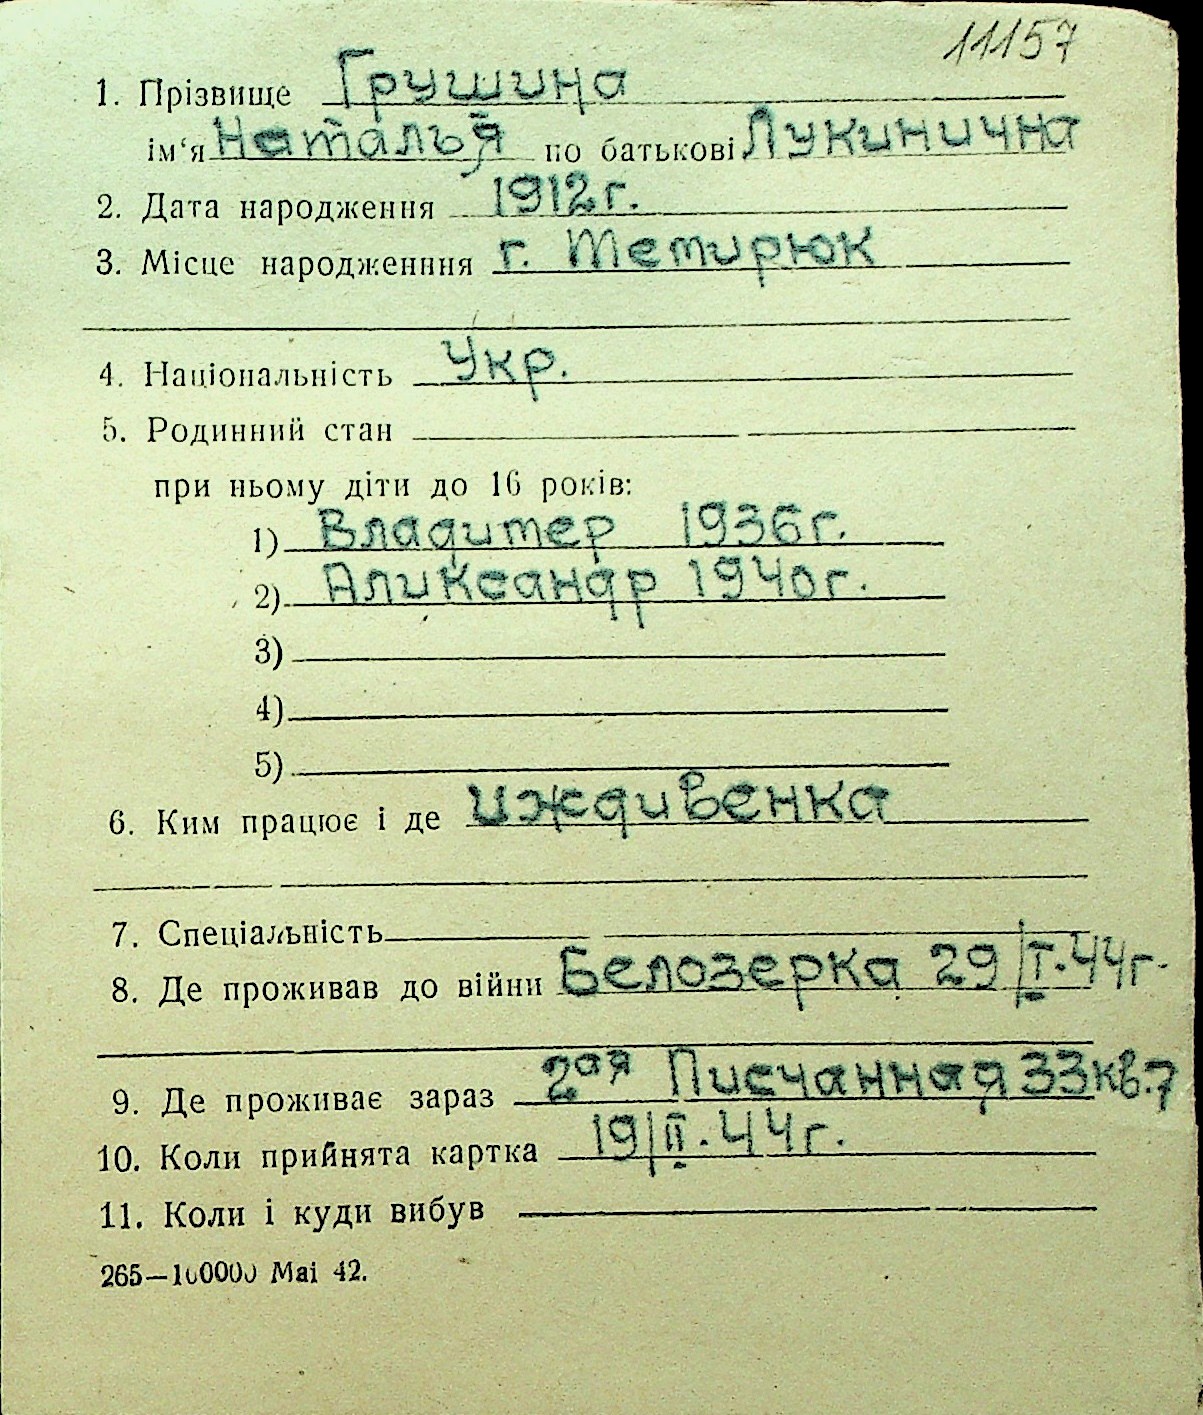 11157
1. Прізвище Грушина
ім'я Наталья по батькові Лукинична
2. Дата народження 1912 г.
3. Місце народженння г. Тетирюк
4. Національність Укр.
5. Родинний стан
при ньому діти до 16 років:
1) Владитер 1936 г.
2) Аликсандр 1940 г.
3)
4)
5)
6. Ким працює і де иждивенка
7. Спеціальність
8. Де проживав до війни Белозерка 29/I.44 г.
9. Де проживає зараз 2ая Писчанная 33 кв. 7
10. Коли прийнята картка 19/II.44 г.
11. Коли і куди вибув
265—100000 Mai 42.